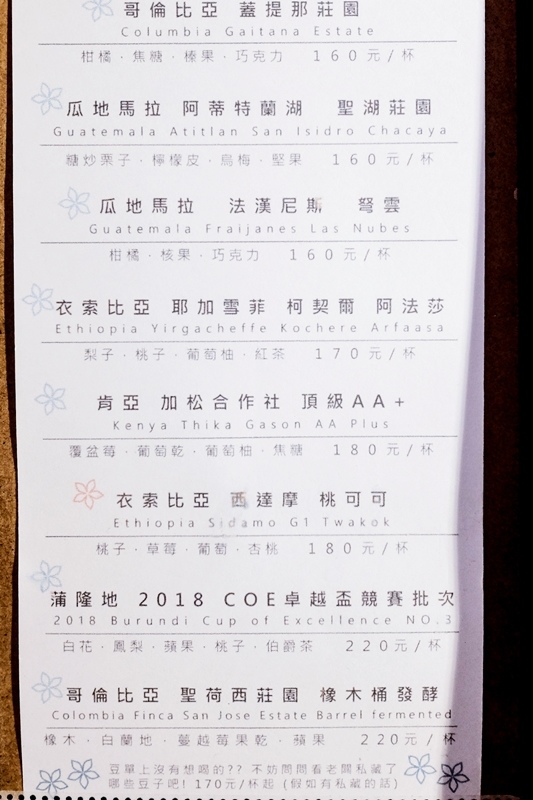 哥倫比亞 蓋提那莊園
Columbia Gaitana Estate
柑橘．焦糖．榛果．巧克力 160元/杯
瓜地馬拉 阿蒂特蘭湖 聖湖莊園
Guatemala Atitlan San Isidro Chacaya
糖炒栗子．檸檬皮．烏梅．堅果 160元/杯
瓜地馬拉 法漢尼斯 弩雲
Guatemala Fraijanes Las Nubes
柑橘．核果．巧克力 160元/杯
衣索比亞 耶加雪菲 柯契爾 阿法莎
Ethiopia Yirgacheffe Kochere Arfaasa
梨子．桃子．葡萄柚．紅茶 170元/杯
肯亞 加松合作社 頂級AA+
Kenya Thika Gason AA Plus
覆盆莓．葡萄乾．葡萄柚．焦糖 180元/杯
衣索比亞 西達摩 桃可可
Ethiopia Sidamo G1 Twakok
桃子．草莓．葡萄．杏桃 180元/杯
蒲隆地 2018 COE卓越盃競賽批次
2018 Burundi Cup of Excellence NO.3
白花．鳳梨．蘋果．桃子．伯爵茶 220元/杯
哥倫比亞 聖荷西莊園 橡木桶發酵
Colombia Finca San Jose Estate Barrel fermented
橡木．白蘭地．蔓越莓果乾．蘋果 220元/杯
豆單上沒有想喝的?? 不妨問問看老闆私藏了
哪些豆子吧! 170元/杯起 (假如有私藏的話)